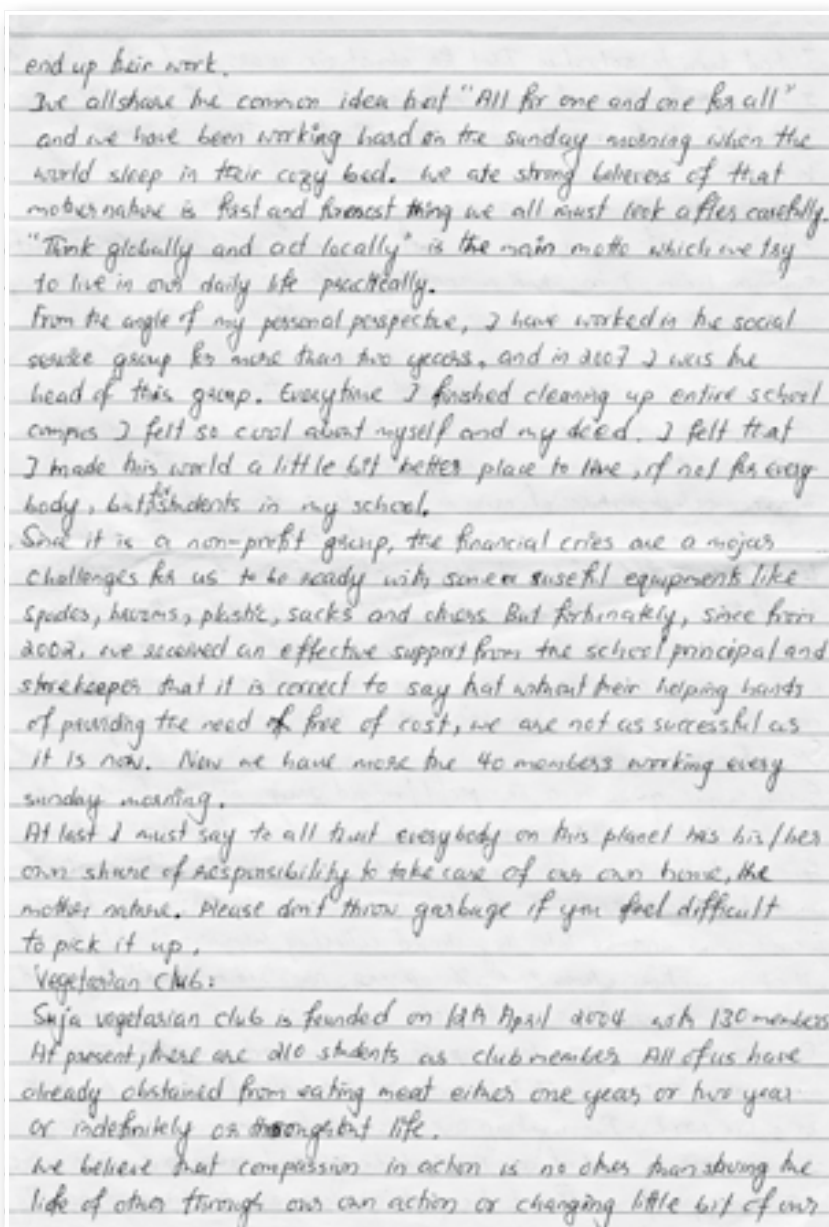 end up their work.
We all share the common idea that "All for one and one for all"
and we have been working hard on the sunday morning when the
world sleep in their cozy bed. We are strong believers of that
mother nature is first and foremost thing we all must look after carefully.
"Think globally and act locally" is the main motto which we try
to live in our daily life practically.
From the angle of my personal perspective, I have worked in the social
service group for more than two years, and in 2007 I was the
head of this group. Everytime I finished cleaning up entire school
campus I felt so cool about myself and my deed. I felt that
I made this world a little bit better place to live, if not for every
body, but for students in my school.
Since it is a non-profit group, the financial cries are a major
challenges for us to be ready with some useful equipments like
spades, brooms, plastic, sacks and others. But fortunately, since from
2002, we received an effective support from the school principal and
storekeeper that it is correct to say that without their helping hands
of providing the need of free of cost, we are not as successful as
it is now. Now we have more the 40 members working every
sunday morning.
At last I must say to all that everybody on this planet has his/her
own share of responsibility to take care of our own home, the
mother nature. Please don't throw garbage if you feel difficult
to pick it up.
Vegetarian Club:
Suja vegetarian club is founded on 12th April 2004 with 130 members
At present, there are 210 students as club member. All of us have
already obstained from eating meat either one year or two year
or indefinitely or throughout life.
We believe that compassion in action is no other than saving the
life of other through our own action or changing little bit of our